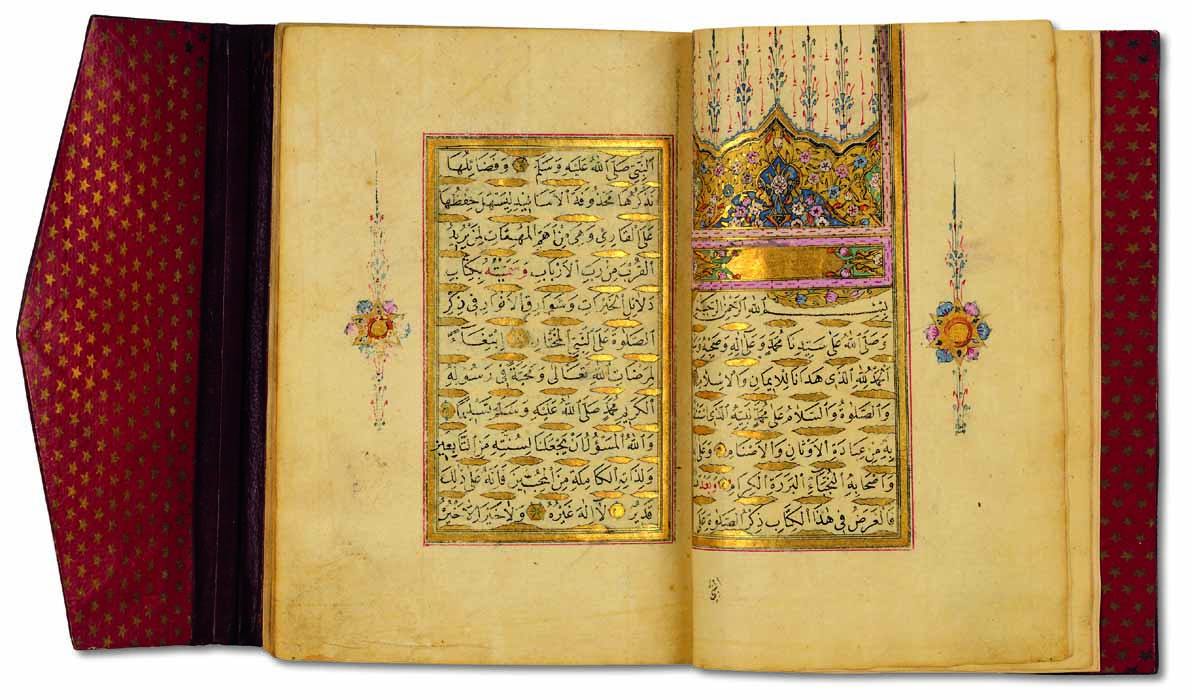 بسم الله الرحمن الرحيم
وَصَلَّى اللهُ عَلَى سَيِّدِنَا مُحَمَّدٍ وَعَلَى اٰلِهِ وَصَحْبِهِ
اَلْحَمْدُ لِلّٰهِ الَّذِي هَدَانَا لِلْاِيمَانِ وَالْاِسْلَامِ
وَالصَّلٰوةُ وَالسَّلَامُ عَلَى مُحَمَّدٍ نَبِيِّهِ الَّذِي
بِهِ مِنْ عِبَادَةِ الْاَوْثَانِ وَالْاَصْنَامِ وَعَلَى
وَاَصْحَابِهِ النُّجَبَاءِ الْبَرَرَةِ الْكِرَامِ وَبَعْدُ
فَالْغَرَضُ فِي هٰذَا الْكِتَابِ ذِكْرُ الصَّلٰوةِ عَلَى
النَّبِيِّ صَلَّى اللهُ عَلَيْهِ وَسَلَّمَ وَفَضَائِلُهَا
نَذْكُرُهَا مَحْذُوفَةَ الْاَسَانِيدِ لِيَسْهُلَ حِفْظُهَا
عَلَى الْقَارِئِ وَهِيَ مِنْ اَهَمِّ الْمُهِمَّاتِ لِمَنْ يُرِيدُ
الْقُرْبَ مِنْ رَبِّ الْاَرْبَابِ وَسَمَّيْتُهُ بِكِتَابِ
دَلَائِلِ الْخَيْرَاتِ وَشَوَارِقِ الْاَنْوَارِ فِي ذِكْرِ
الصَّلٰوةِ عَلَى النَّبِيِّ الْمُخْتَارِ اِبْتِغَاءً
لِمَرْضَاتِ اللهِ تَعَالَى وَمَحَبَّةً فِي رَسُولِهِ
الْكَرِيمِ مُحَمَّدٍ صَلَّى اللهُ عَلَيْهِ وَسَلَّمَ تَسْلِيمًا
وَاللهُ الْمَسْؤُلُ اَنْ يَجْعَلَنَا لِسُنَّتِهِ مِنَ التَّابِعِينَ
وَلِذَاتِهِ الْكَامِلَةِ مِنَ الْمُحِبِّينَ فَاِنَّهُ عَلَى ذٰلِكَ
قَدِيرٌ لَا اِلٰهَ غَيْرُهُ وَلَا خَيْرَ اِلَّا خَيْرُهُ